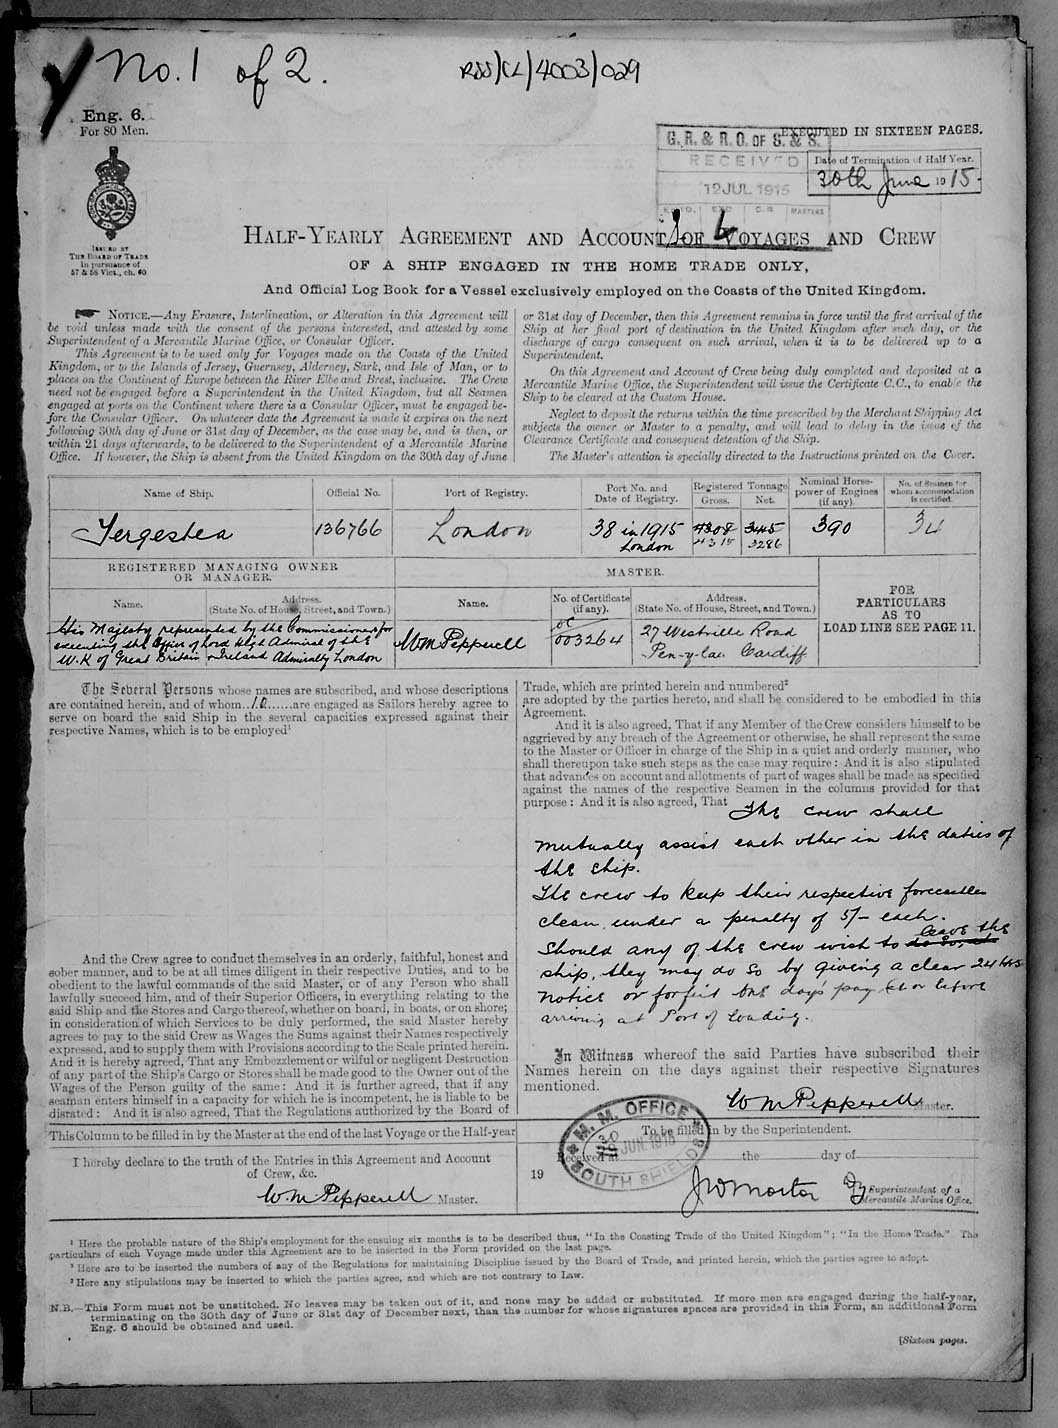 No. 1 of 2.
RSS/CL/4003/029
Eng. 6.
For 80 Men.
EXECUTED IN SIXTEEN PAGES.
G. R. & R. O. OF S. & S.
RECEIVED
12 JUL 1915
MASTERS
Date of Termination of Half Year.
30th June 1915.
ISSUED BY
THE BOARD OF TRADE
in pursuance of
57 & 58 Vict., ch. 60
HALF-YEARLY AGREEMENT AND ACCOUNT OF VOYAGES AND CREW
OF A SHIP ENGAGED IN THE HOME TRADE ONLY,
And Official Log Book for a Vessel exclusively employed on the Coasts of the United Kingdom.
NOTICE.—Any Erasure, Interlineation, or Alteration in this Agreement will
be void unless made with the consent of the persons interested, and attested by some
Superintendent of a Mercantile Marine Office, or Consular Officer.
This Agreement is to be used only for Voyages made on the Coasts of the United
Kingdom, or to the Islands of Jersey, Guernsey, Alderney, Sark, and Isle of Man, or to
places on the Continent of Europe between the River Elbe and Brest, inclusive. The Crew
need not be engaged before a Superintendent in the United Kingdom, but all Seamen
engaged at ports on the Continent where there is a Consular Officer, must be engaged be-
fore the Consular Officer. On whatever date the Agreement is made it expires on the next
following 30th day of June or 31st day of December, as the case may be, and is then, or
within 21 days afterwards, to be delivered to the Superintendent of a Mercantile Marine
Office. If however, the Ship is absent from the United Kingdom on the 30th day of June
or 31st day of December, then this Agreement remains in force until the first arrival of the
Ship at her final port of destination in the United Kingdom after such day, or the
discharge of cargo consequent on such arrival, when it is to be delivered up to a
Superintendent.
On this Agreement and Account of Crew being duly completed and deposited at a
Mercantile Marine Office, the Superintendent will issue the Certificate C.C., to enable the
Ship to be cleared at the Custom House.
Neglect to deposit the returns within the time prescribed by the Merchant Shipping Act
subjects the owner or Master to a penalty, and will lead to delay in the issue of the
Clearance Certificate and consequent detention of the Ship.
The Master's attention is specially directed to the Instructions printed on the Cover.
Name of Ship.
Official No.
Port of Registry.
Port No. and
Date of Registry.
Registered Tonnage
Gross. Net.
Nominal Horse-
power of Engines
(if any).
No. of Seamen for
whom accommodation
is certified.
Tergestea
136766
London
38 in 1915
London
4308 3445
4315 3286
390
34
REGISTERED MANAGING OWNER
OR MANAGER.
MASTER.
Name.
Address.
(State No. of House, Street, and Town.)
Name.
No. of Certificate
(if any).
Address.
(State No. of House, Street, and Town.)
FOR
PARTICULARS
AS TO
LOAD LINE SEE PAGE 11.
His Majesty represented by the Commissioners for
executing the Office of Lord High Admiral of the
U.K of Great Britain & Ireland Admiralty London
Wm Pepperell
OC
003264
27 Westville Road
Pen-y-lan Cardiff
The Several Persons whose names are subscribed, and whose descriptions
are contained herein, and of whom 10 are engaged as Sailors hereby agree to
serve on board the said Ship in the several capacities expressed against their
respective Names, which is to be employed¹
And the Crew agree to conduct themselves in an orderly, faithful, honest and
sober manner, and to be at all times diligent in their respective Duties, and to be
obedient to the lawful commands of the said Master, or of any Person who shall
lawfully succeed him, and of their Superior Officers, in everything relating to the
said Ship and the Stores and Cargo thereof, whether on board, in boats, or on shore;
in consideration of which Services to be duly performed, the said Master hereby
agrees to pay to the said Crew as Wages the Sums against their Names respectively
expressed, and to supply them with Provisions according to the Scale printed herein.
And it is hereby agreed, That any Embezzlement or wilful or negligent Destruction
of any part of the Ship's Cargo or Stores shall be made good to the Owner out of the
Wages of the Person guilty of the same: And it is further agreed, that if any
seaman enters himself in a capacity for which he is incompetent, he is liable to be
disrated: And it is also agreed, That the Regulations authorized by the Board of
Trade, which are printed herein and numbered²
are adopted by the parties hereto, and shall be considered to be embodied in this
Agreement.
And it is also agreed, That if any Member of the Crew considers himself to be
aggrieved by any breach of the Agreement or otherwise, he shall represent the same
to the Master or Officer in charge of the Ship in a quiet and orderly manner, who
shall thereupon take such steps as the case may require: And it is also stipulated
that advances on account and allotments of part of wages shall be made as specified
against the names of the respective Seamen in the columns provided for that
purpose: And it is also agreed, That The crew shall
mutually assist each other in the duties of
the ship.
The crew to keep their respective forecastles
clean under a penalty of 5/- each.
Should any of the crew wish to do so, leave the
ship, they may do so by giving a clear 24 hrs
notice or forfeit one day's pay at or before
arriving at Port of loading.
In Witness whereof the said Parties have subscribed their
Names herein on the days against their respective Signatures
mentioned.
Wm Pepperell Master.
This Column to be filled in by the Master at the end of the last Voyage or the Half-year
I hereby declare to the truth of the Entries in this Agreement and Account
of Crew, &c.
Wm Pepperell Master.
M. M. OFFICE
30 JUN 1915
SOUTH SHIELDS
To be filled in by the Superintendent.
Received at the day of
19
Dy Superintendent of a
Mercantile Marine Office.
¹ Here the probable nature of the Ship's employment for the ensuing six months is to be described thus, "In the Coasting Trade of the United Kingdom"; "In the Home Trade." The
particulars of each Voyage made under this Agreement are to be inserted in the Form provided on the last page.
² Here are to be inserted the numbers of any of the Regulations for maintaining Discipline issued by the Board of Trade, and printed herein, which the parties agree to adopt.
³ Here any stipulations may be inserted to which the parties agree, and which are not contrary to Law.
N.B.—This Form must not be unstitched. No leaves may be taken out of it, and none may be added or substituted. If more men are engaged during the half-year,
terminating on the 30th day of June or 31st day of December next, than the number for whose signatures spaces are provided in this Form, an additional Form
Eng. 6 should be obtained and used.
[Sixteen pages.